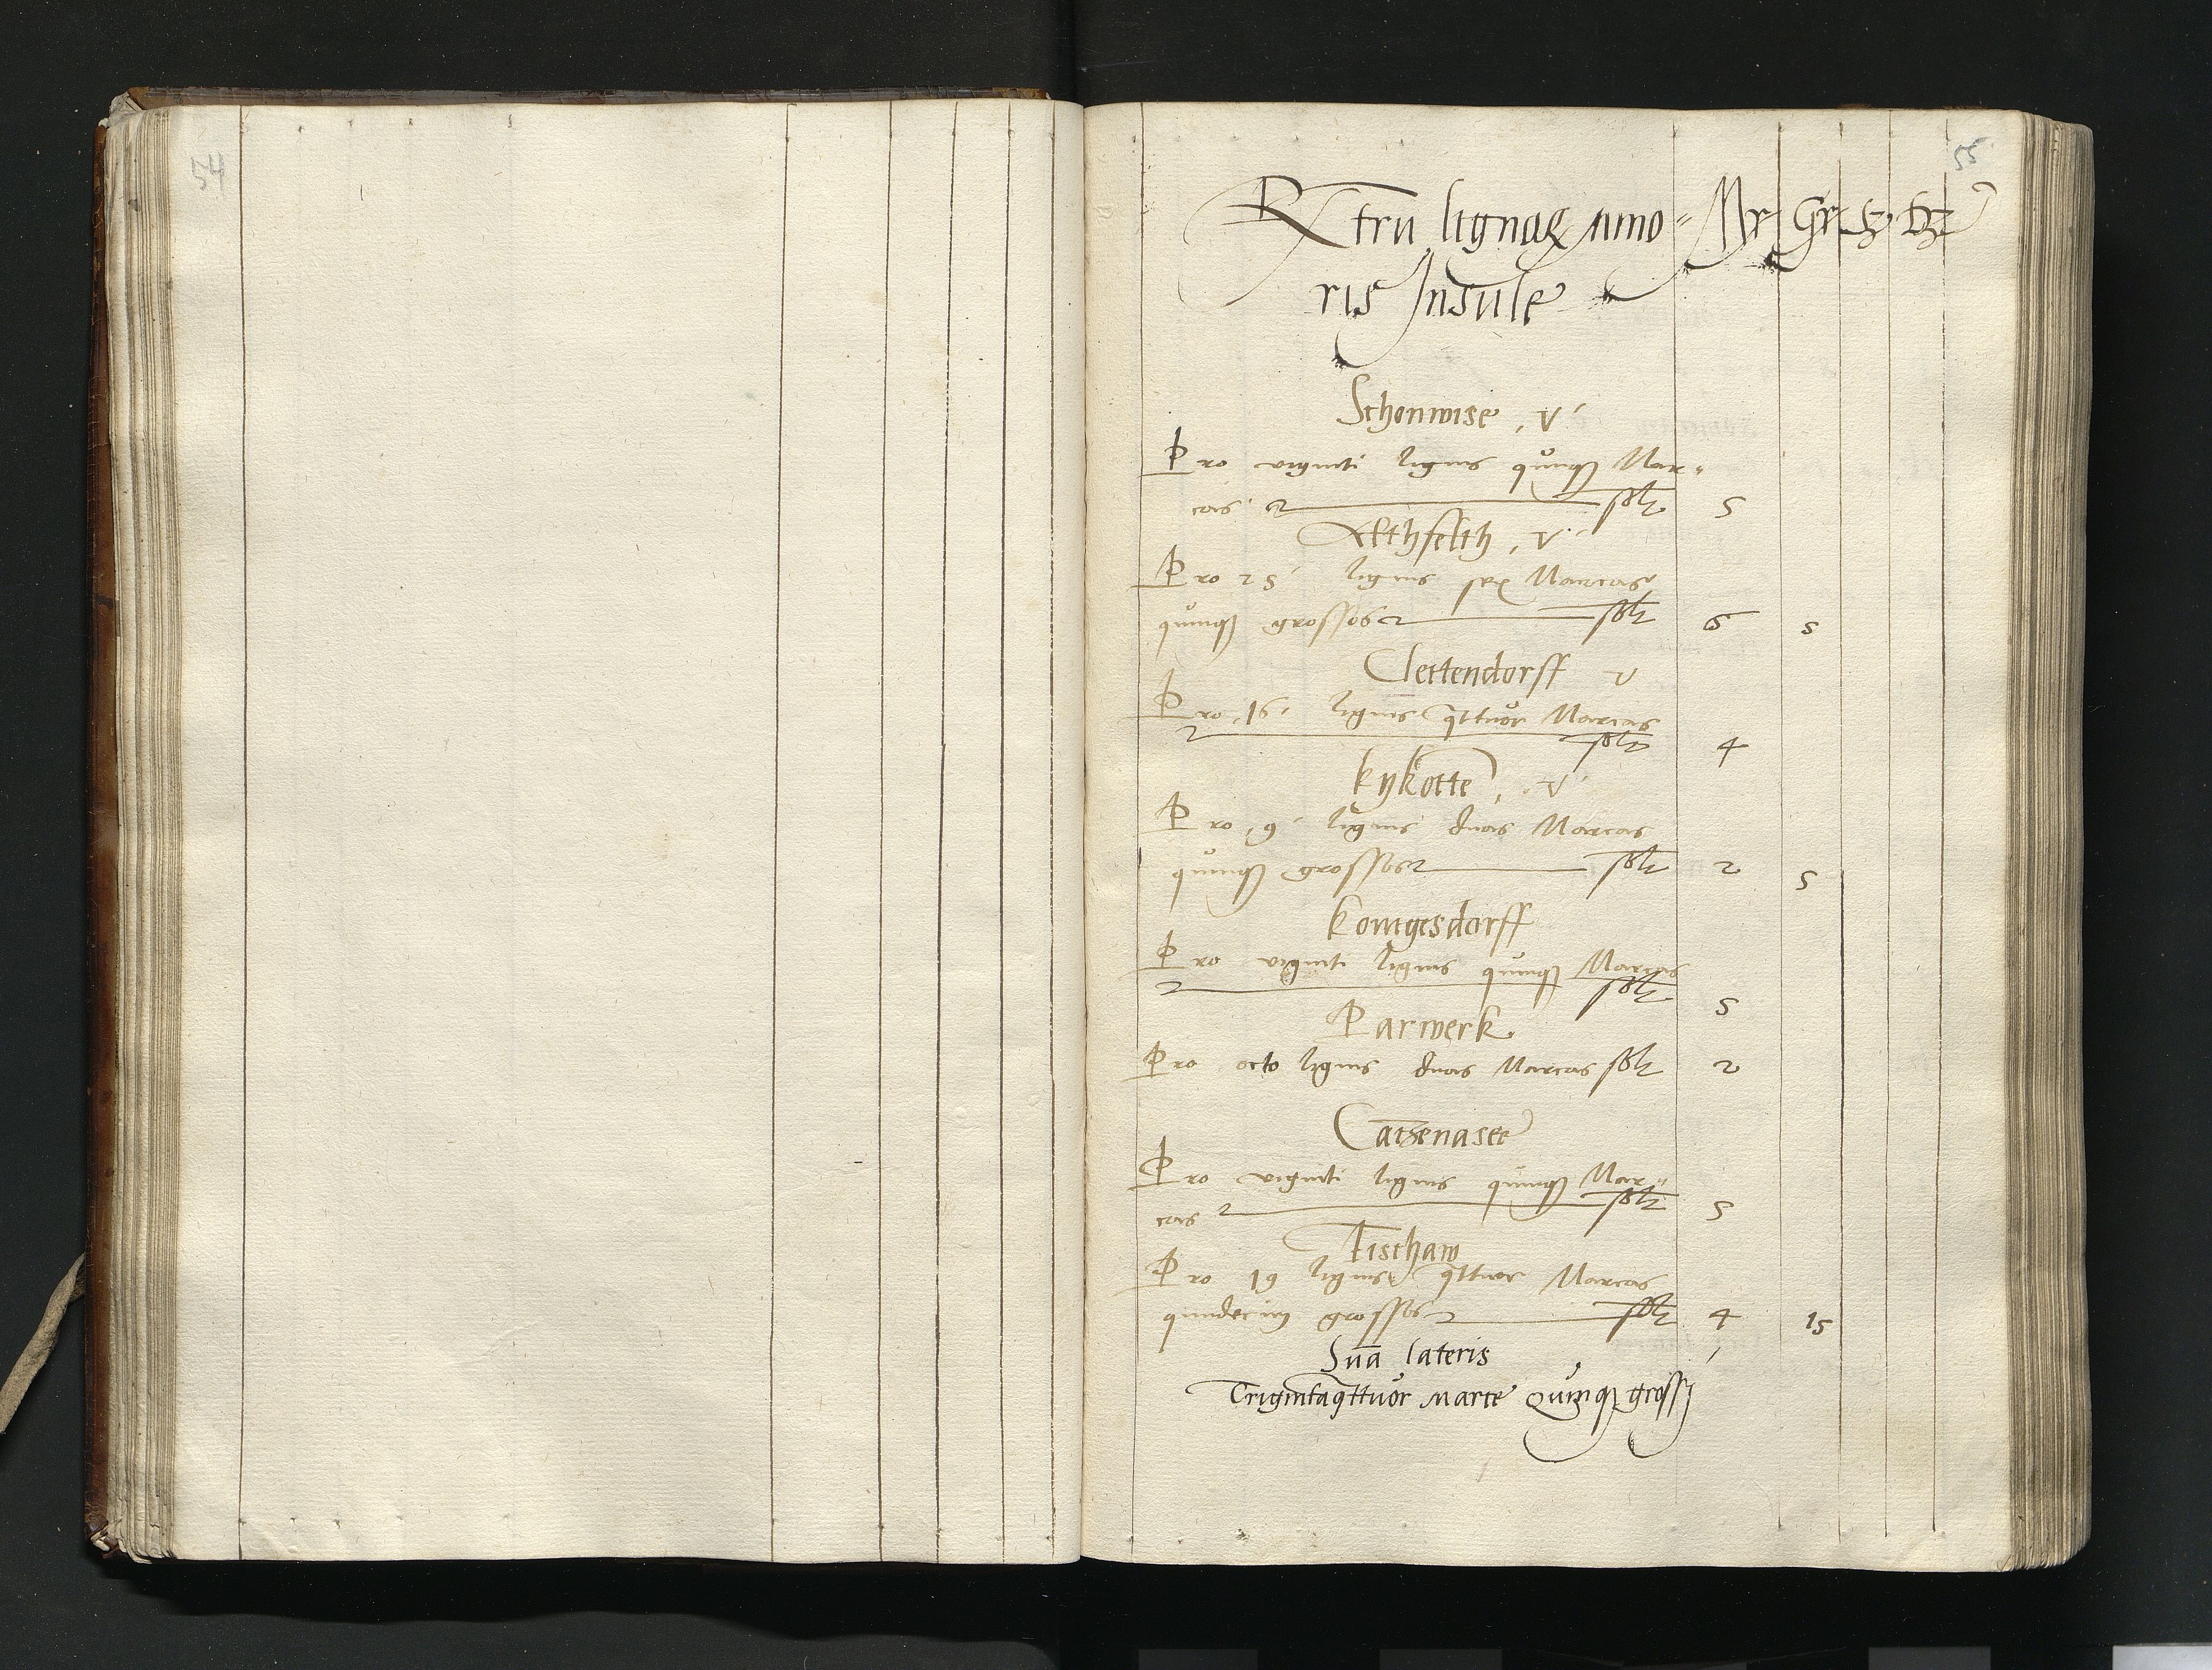 54
55
Rx tru lignaꝝ mino= Mr Gr ß Dz
ris Insule
Schonwise, v
Pro viginti lignis quinqꝫ Mar=
cas solt 5
Althfelth, v
Pro 25 lignis sex Marcas
quinqꝫ grossos solt 6 5
Clettendorff v
Pro 16 lignis qttuor Marcas
solt 4
kykotte, v
Pro 9 lignis duas Marcas
quinqꝫ grossos solt 2 5
konigesdorff
Pro viginti lignis quinqꝫ Marcas
solt 5
Parwerk
Pro octo lignis duas Marcas solt 2
Catzenasee
Pro viginti lignis quinqꝫ Mar=
cas solt 5
Fischaw
Pro 19 lignis qttuor Marcas
quindecim grossos solt 4 15
Sua lateris
Trigintaqttuor marce Quinqꝫ grossj